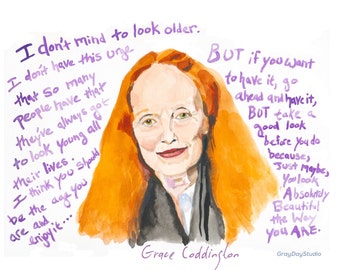 I don't mind to look older.
I don't have this urge
that so many
people have that
they've always got
to look young all
their lives.
I think you should
be the age you
are and
enjoy it...
BUT if you want
to have it, go
ahead and have it,
BUT take a
good look
before you do
because,
Just maybe,
you look
Absolutely
Beautiful
the Way
you ARE.
Grace Coddington
GrayDayStudio